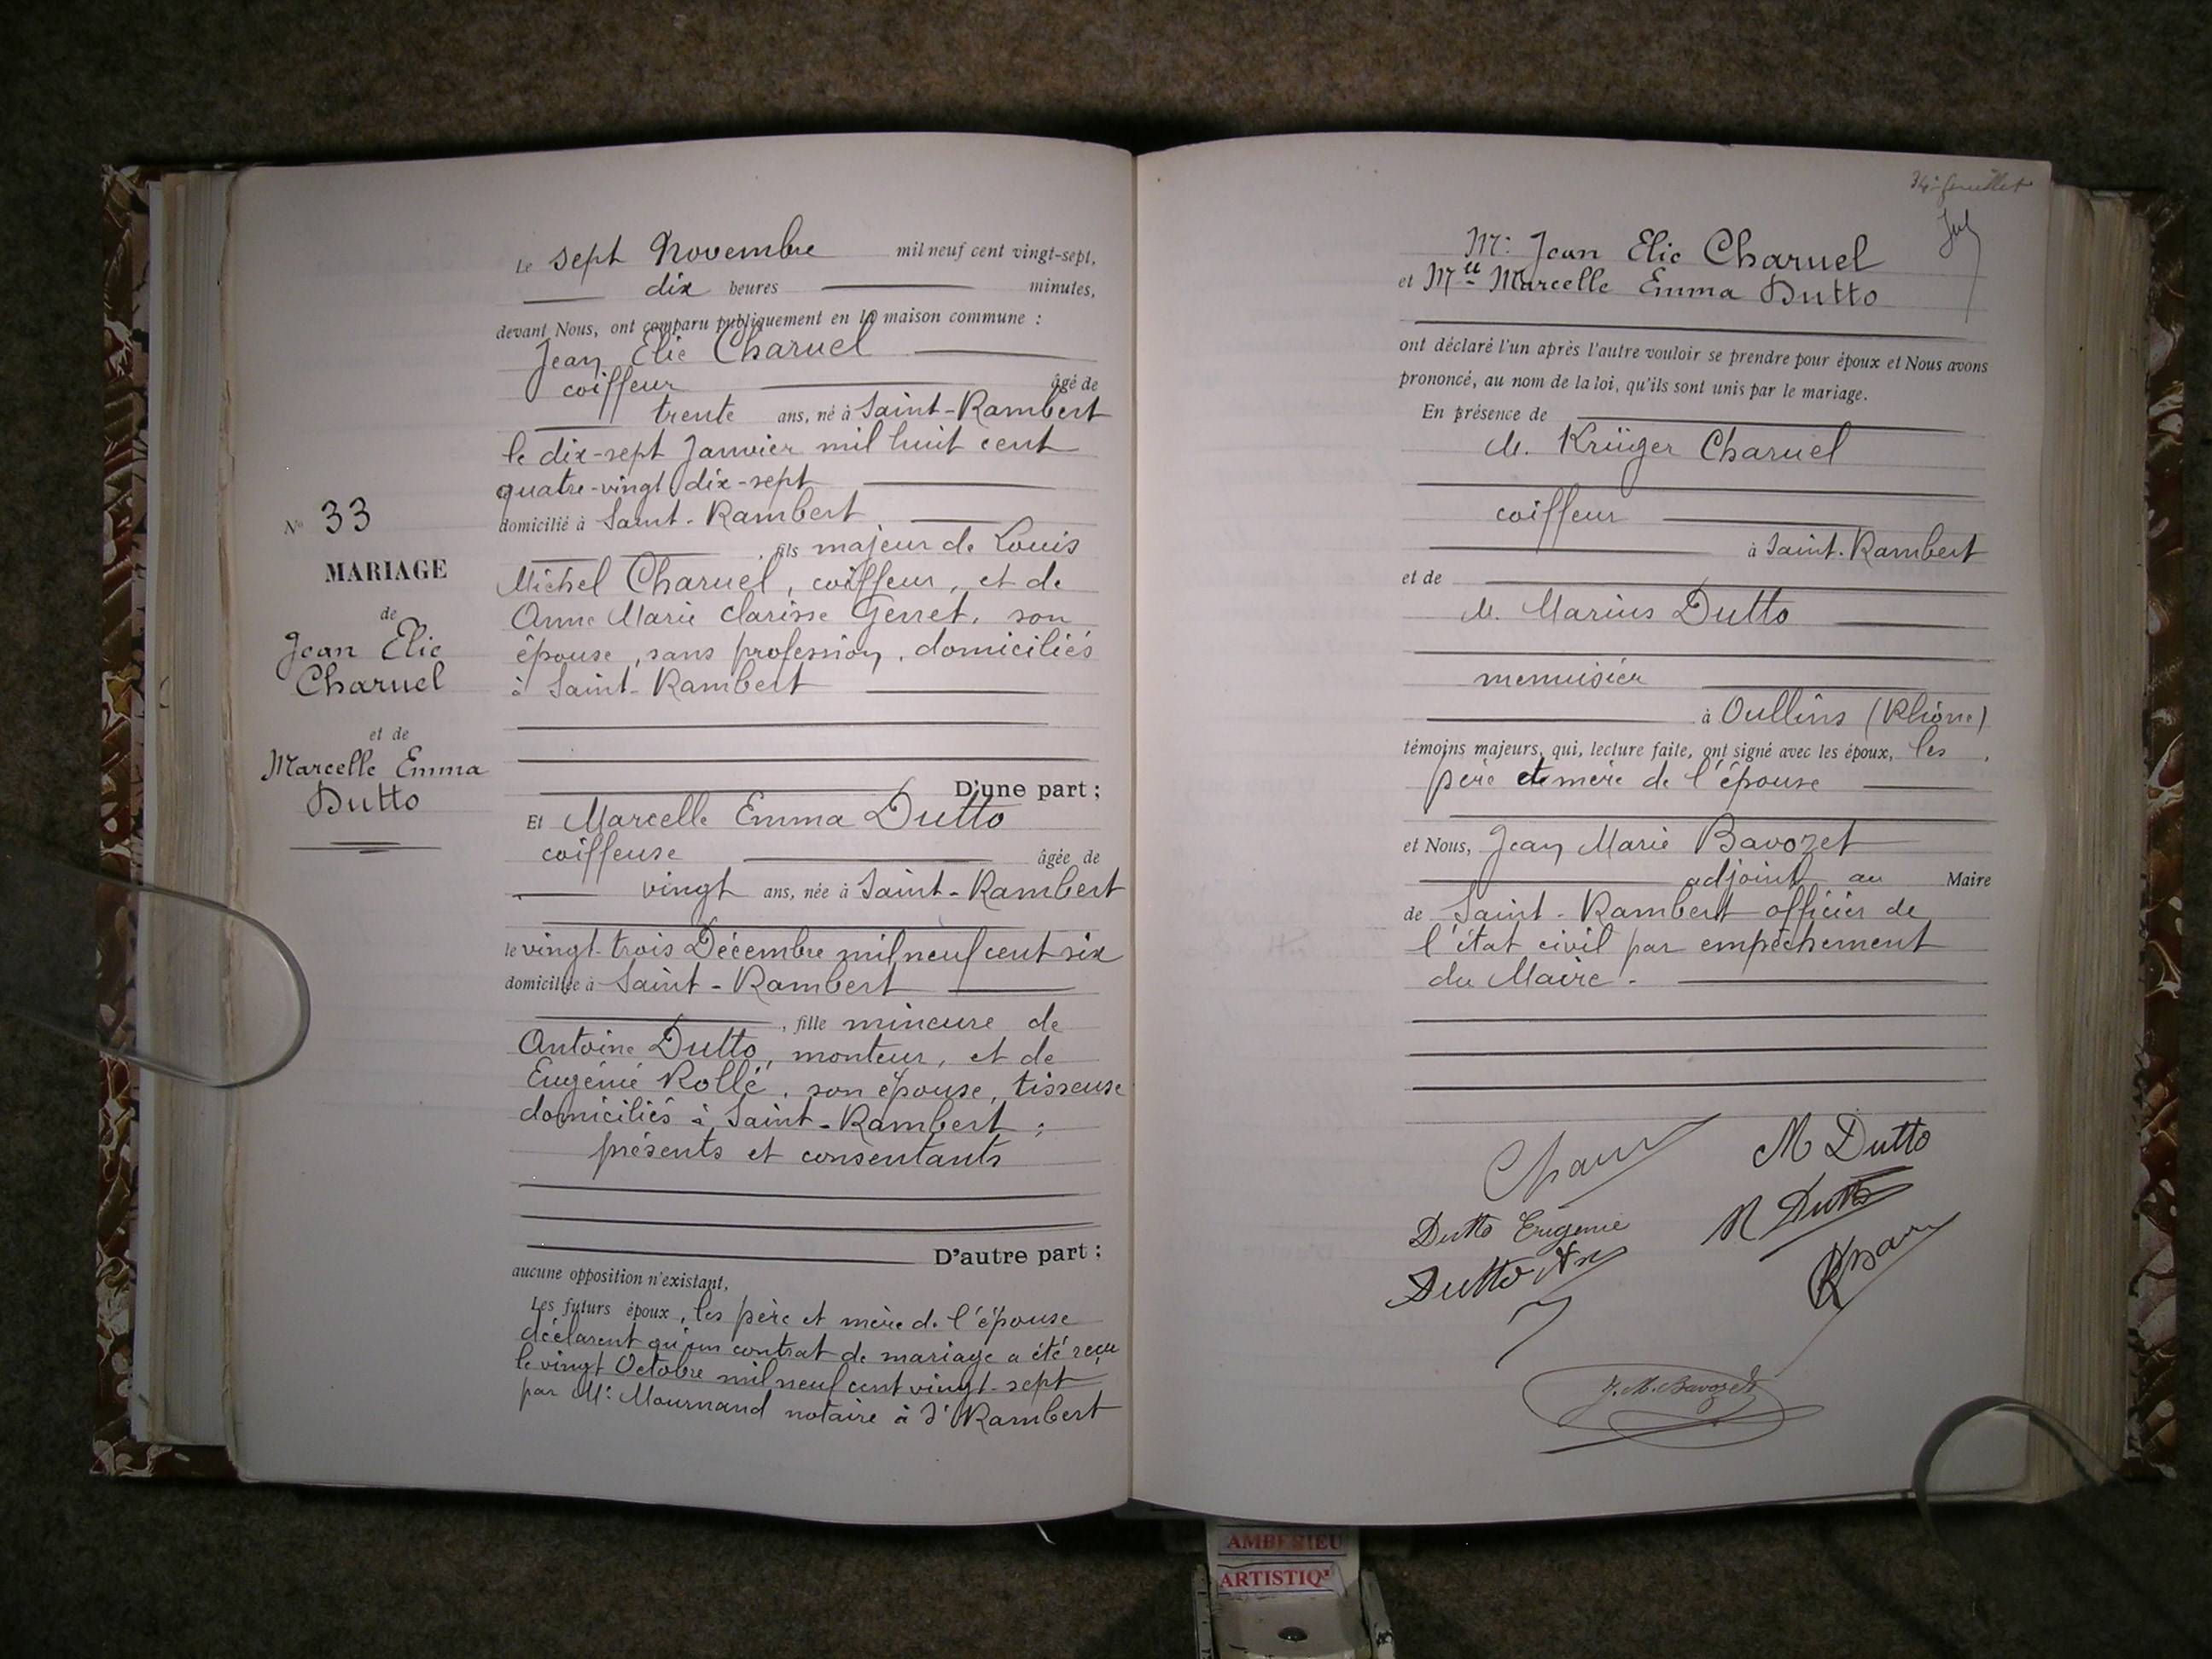 N° 33
MARIAGE
de
Jean Elie
Charuel
et de
Marcelle Emma
Dutto
Le sept Novembre mil neuf cent vingt-sept,
dix heures minutes,
devant Nous, ont comparu publiquement en la maison commune :
Jean Elie Charuel
coiffeur âgé de
trente ans, né à Saint-Rambert
le dix-sept Janvier mil huit cent
quatre-vingt dix-sept
domicilié à Saint-Rambert
, fils majeur de Louis
Michel Charuel, coiffeur, et de
Anne Marie Clarisse Genet, son
épouse, sans profession, domiciliés
à Saint-Rambert
D'une part ;
Et Marcelle Emma Dutto
coiffeuse âgée de
vingt ans, née à Saint-Rambert
le vingt-trois Décembre mil neuf cent six
domiciliée à Saint-Rambert
, fille mineure de
Antoine Dutto, monteur, et de
Eugénie Rollé, son épouse, tisseuse
domiciliés à Saint-Rambert ;
présents et consentants
D'autre part ;
aucune opposition n'existant,
Les futurs époux, les père et mère de l'épouse
déclarent qu'un contrat de mariage a été reçu
le vingt Octobre mil neuf cent vingt-sept
par Me Mournand notaire à St Rambert
34e feuillet
Mr Jean Elie Charuel
et Mlle Marcelle Emma Dutto
ont déclaré l'un après l'autre vouloir se prendre pour époux et Nous avons
prononcé, au nom de la loi, qu'ils sont unis par le mariage.
En présence de
M. Krüger Charuel
coiffeur
à Saint-Rambert
et de
M. Marius Dutto
menuisier
à Oullins (Rhône)
témoins majeurs, qui, lecture faite, ont signé avec les époux, les
père et mère de l'épouse
et Nous, Jean Marie Bavozet
adjoint au Maire
de Saint-Rambert officier de
l'état civil par empêchement
du Maire.
M Dutto
Dutto Eugenie
M Dutto
Dutto An
J. M. Bavozet
AMBERIEU
ARTISTIQ